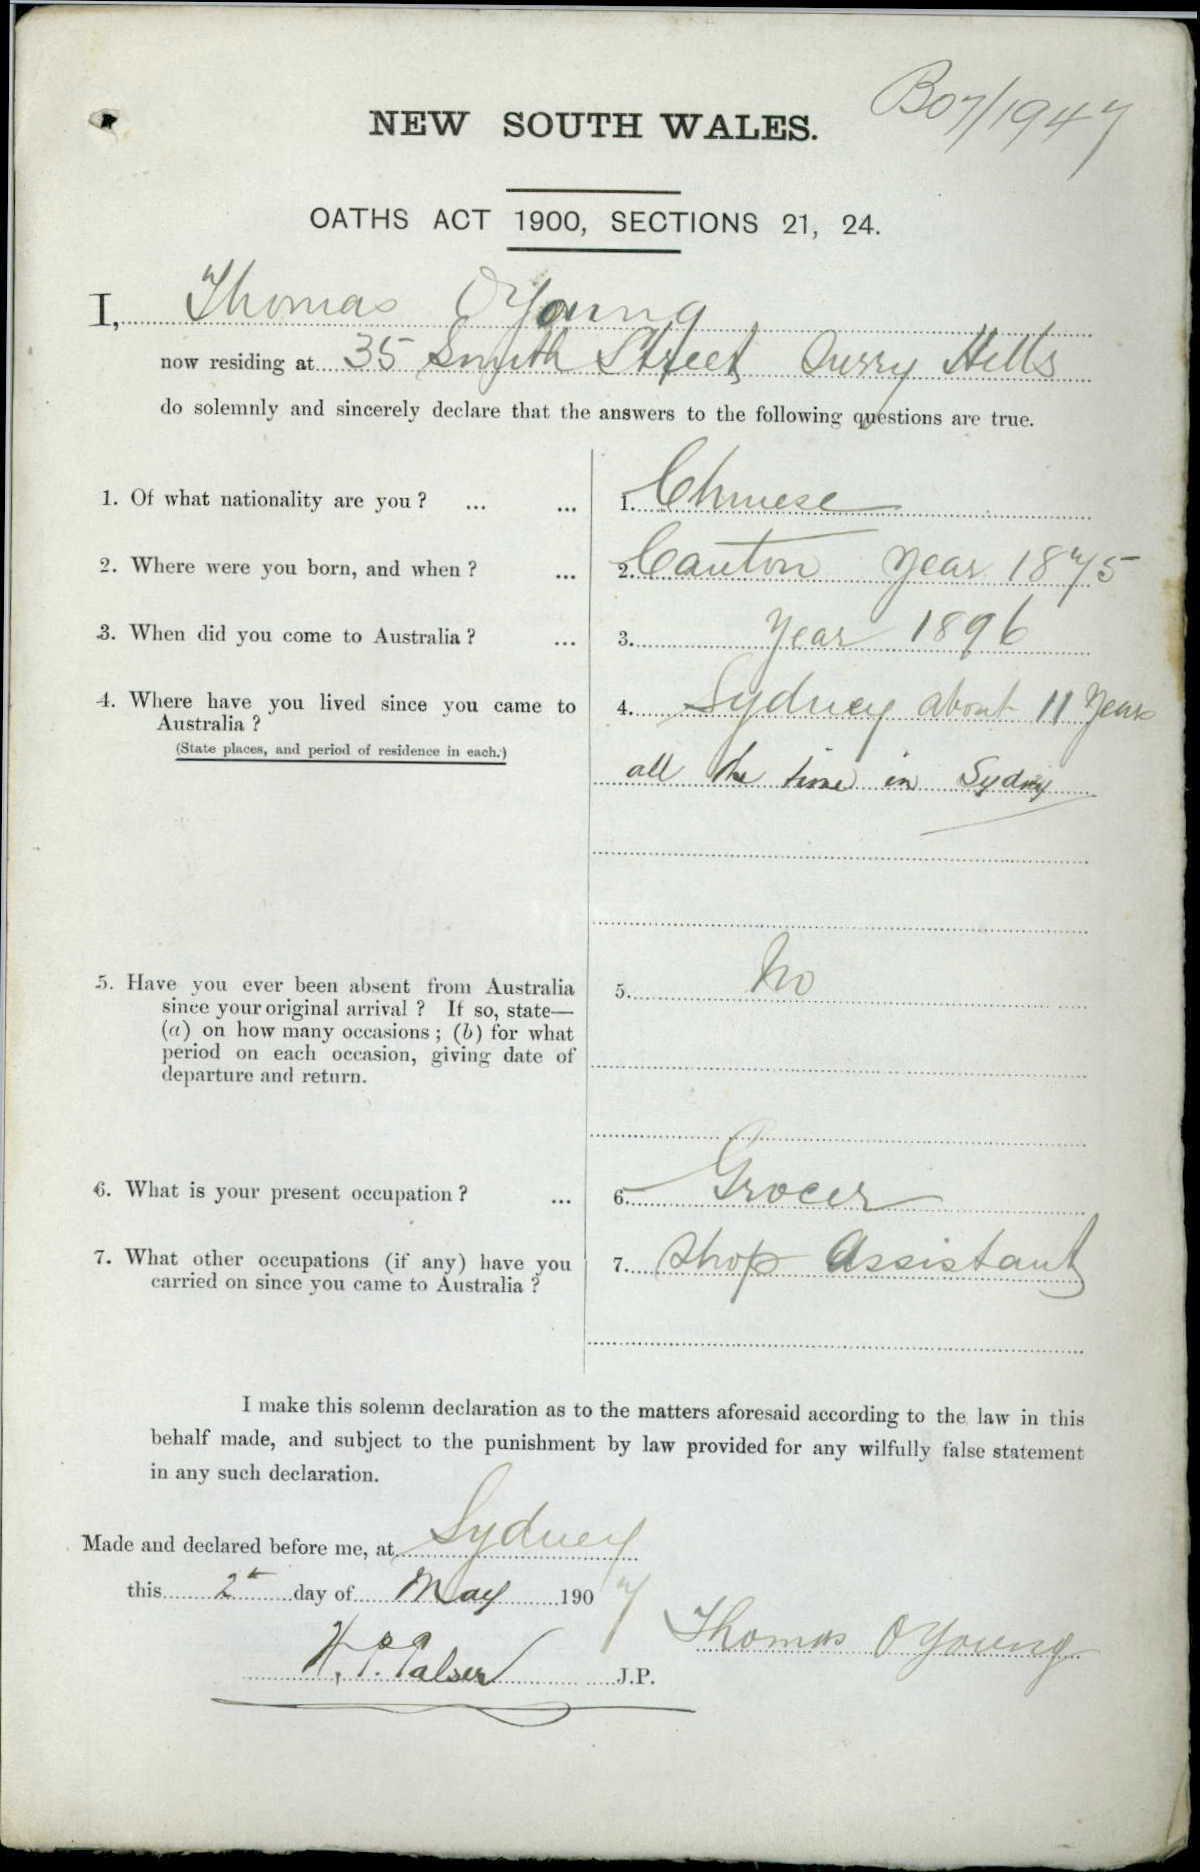 B07/1947
NEW SOUTH WALES.
OATHS ACT 1900, SECTIONS 21, 24.
I, Thomas OYoung
now residing at 35 Smith Street Surry Hills
do solemnly and sincerely declare that the answers to the following questions are true.
1. Of what nationality are you? ... ... 1. Chinese
2. Where were you born, and when? ... 2. Canton Year 1875
3. When did you come to Australia? ... 3. Year 1896
4. Where have you lived since you came to 4. Sydney about 11 Years
Australia?
(State places, and period of residence in each.)
all the time in Sydney
5. Have you ever been absent from Australia 5. No
since your original arrival? If so, state—
(a) on how many occasions; (b) for what
period on each occasion, giving date of
departure and return.
6. What is your present occupation? ... 6. Grocer
7. What other occupations (if any) have you 7. Shop Assistant
carried on since you came to Australia?
I make this solemn declaration as to the matters aforesaid according to the law in this
behalf made, and subject to the punishment by law provided for any wilfully false statement
in any such declaration.
Made and declared before me, at Sydney
this 2th day of May 1907
Thomas OYoung
H. P. Palser J.P.